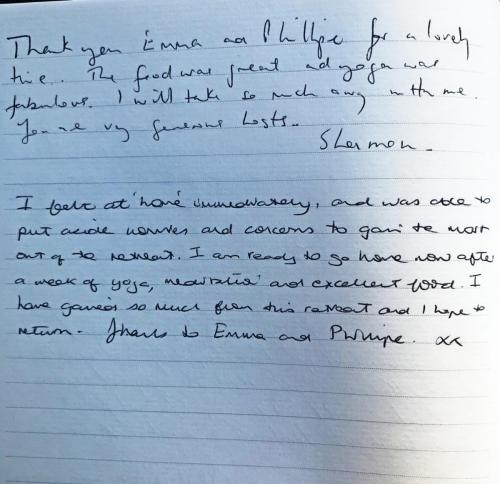 Thank you Emma and Phillipe for a lovely
time. The food was great and yoga was
fabulous. I will take so much away with me.
You are very generous hosts.
Sharmon.
I felt at 'home' immediately, and was able to
put aside worries and concerns to gain the most
out of the retreat. I am ready to go home now after
a week of yoga, meditation and excellent food. I
have gained so much from this retreat and I hope to
return. Thanks to Emma and Phillipe. xx